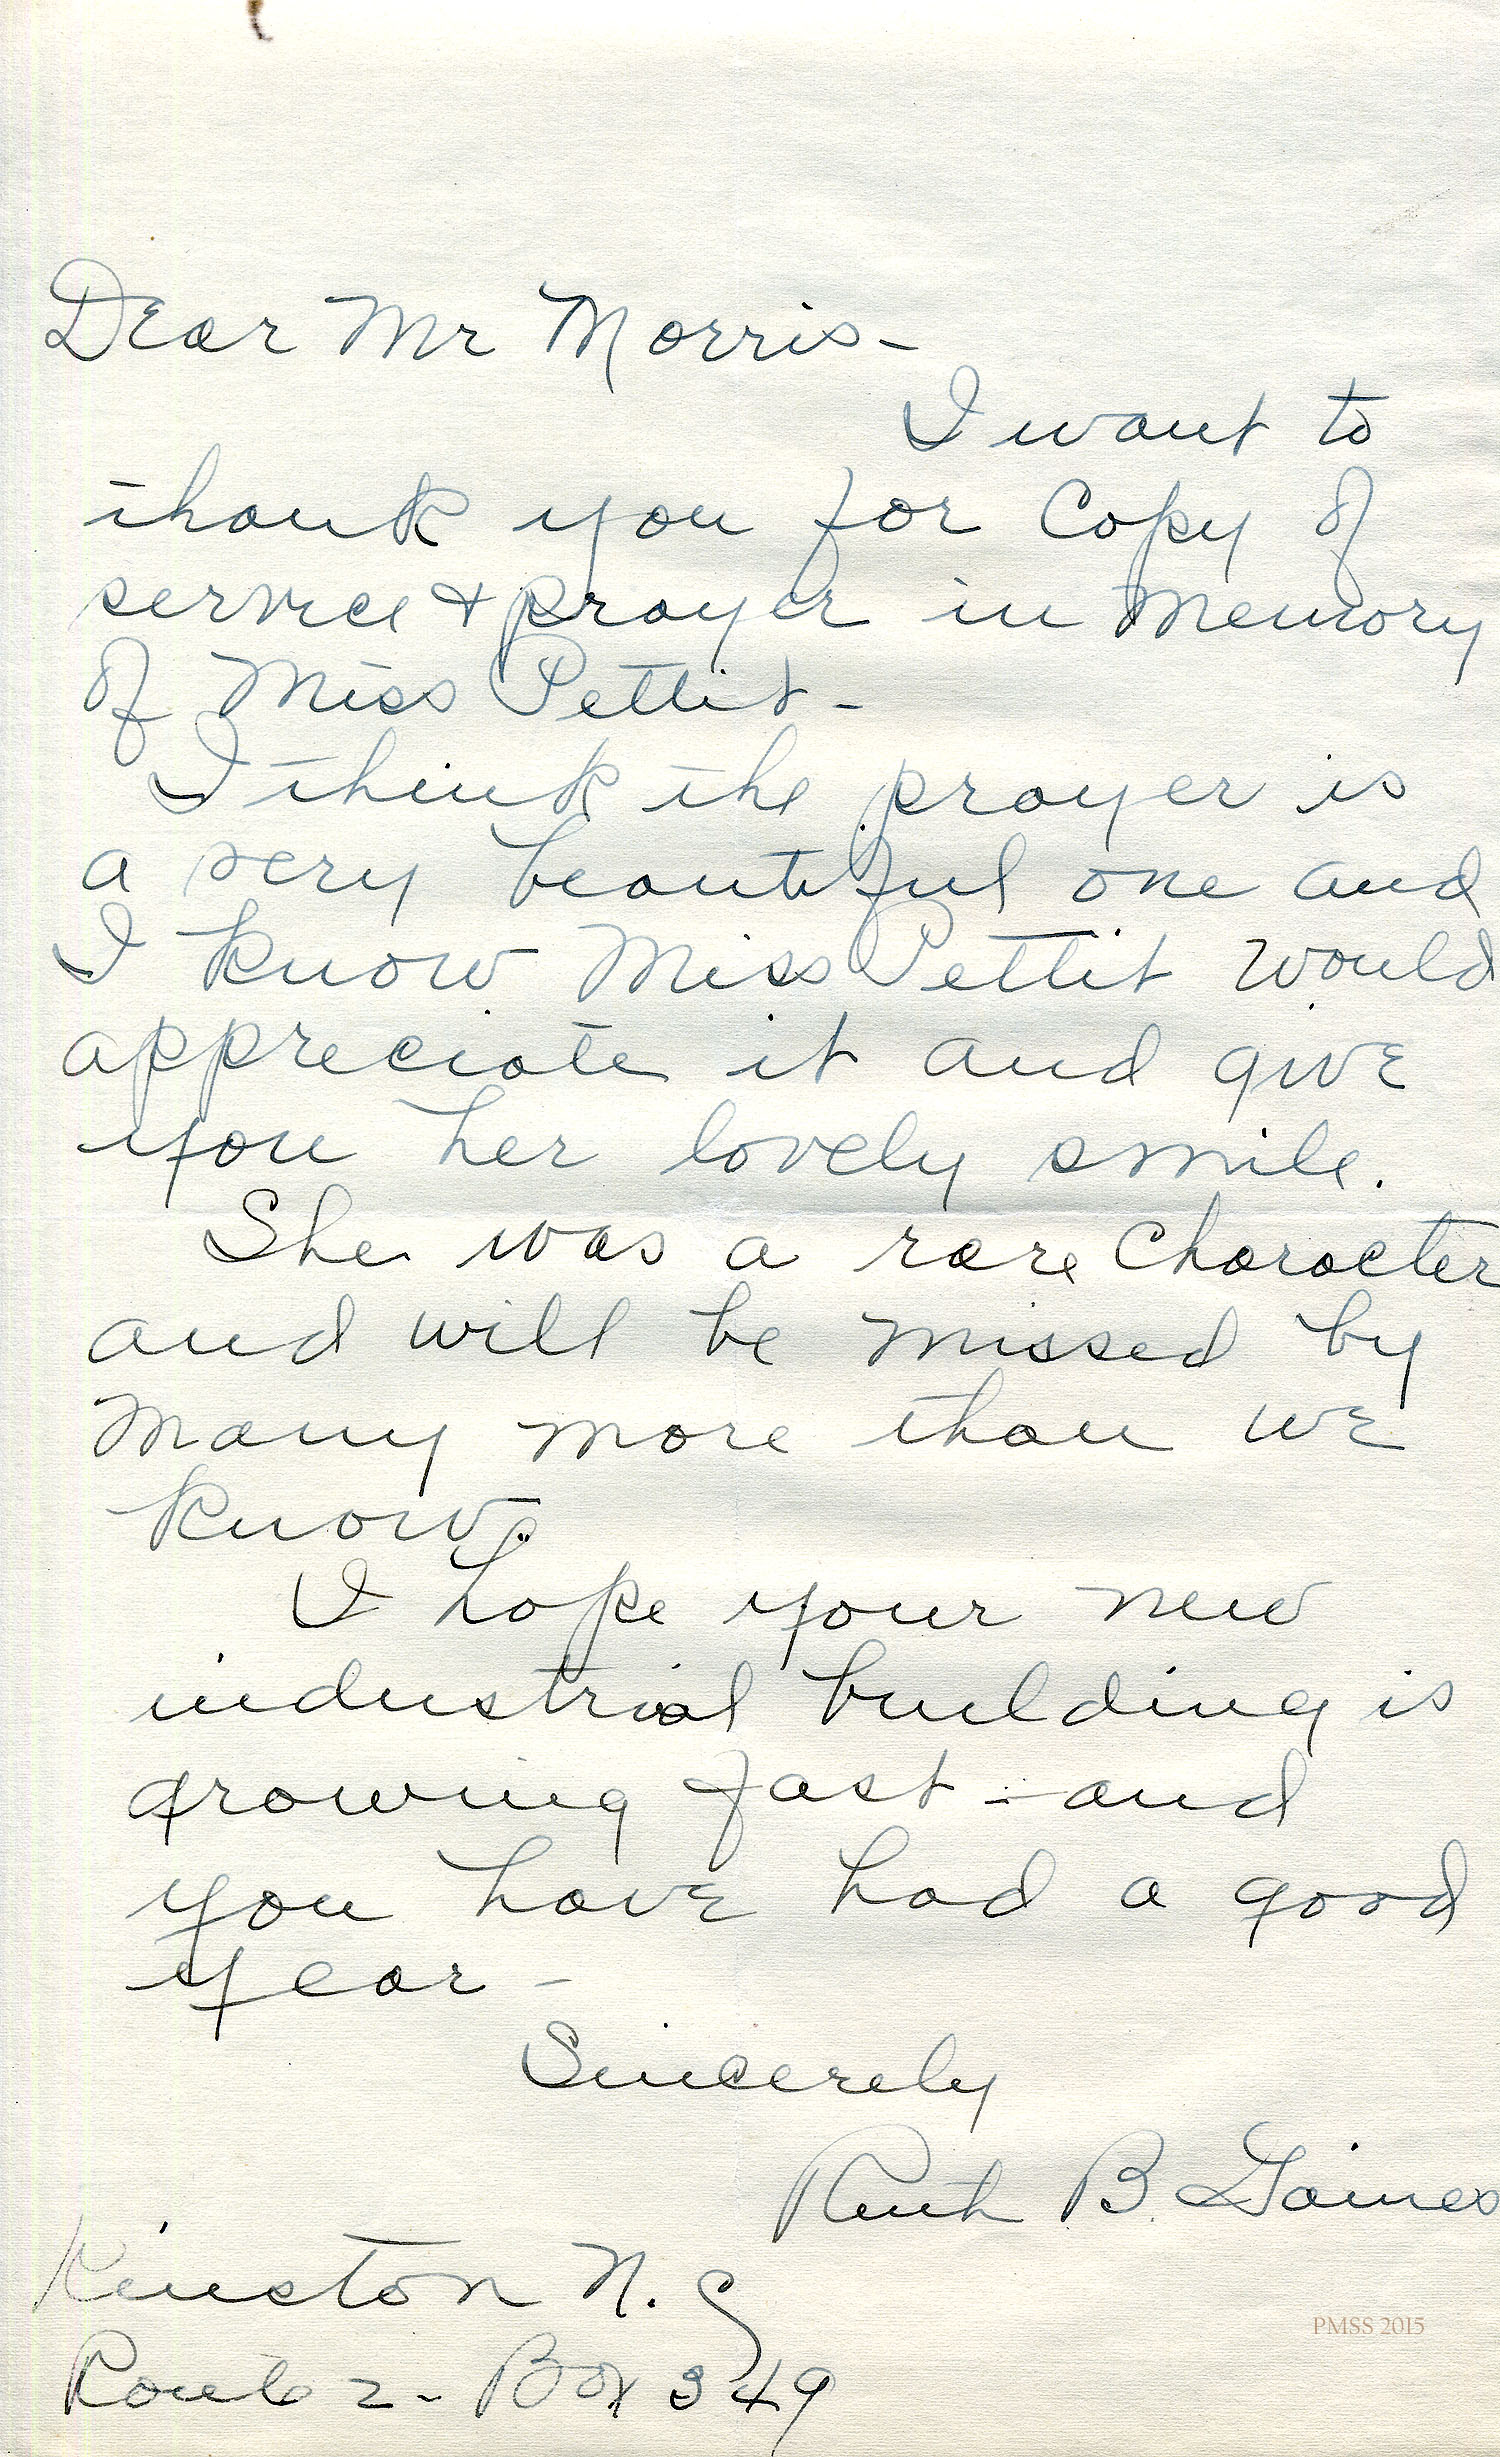 Dear Mr Morris-
I want to
thank you for Copy of
service + prayer in Memory
of Miss Pettit-
I think the prayer is
a very beautiful one and
I know Miss Pettit would
appreciate it and give
you her lovely smile.
She was a rare Character
and will be missed by
many more than we
know.
I hope your new
industrial building is
growing fast - and
you have had a good
year-
Sincerely
Ruth B. Gaines
Kinston N. C
Route 2 - Box 349
PMSS 2015